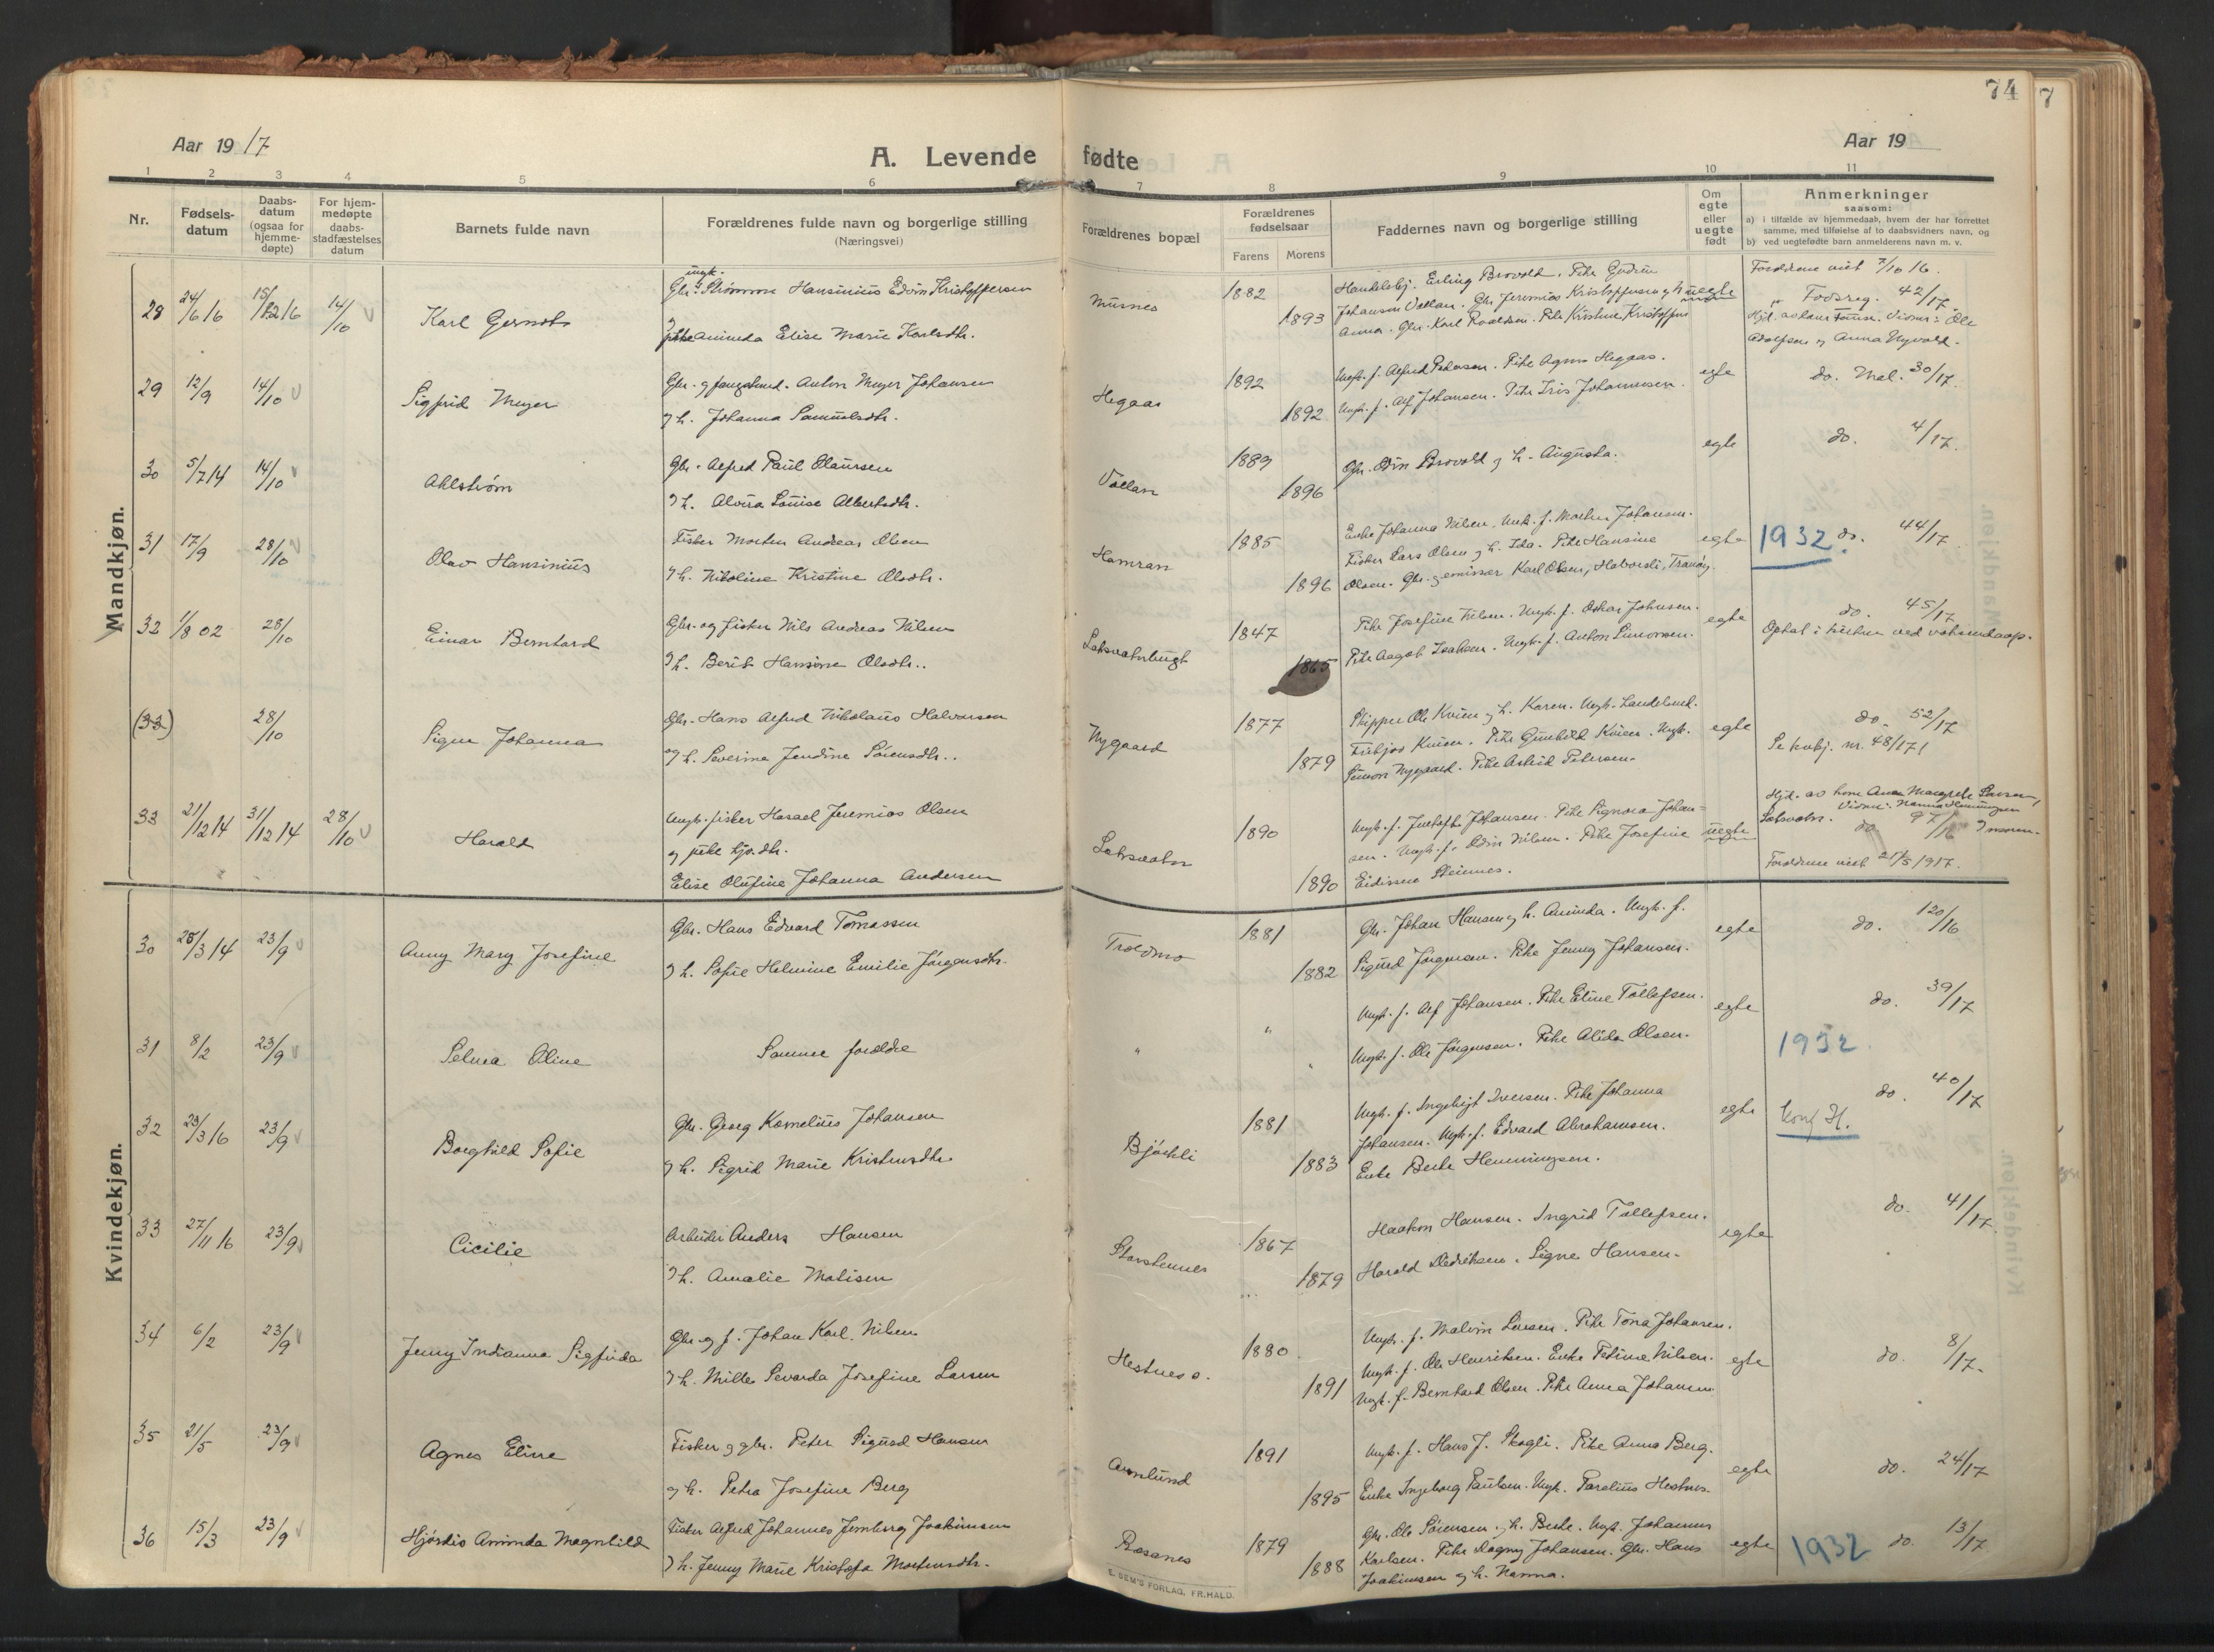 74
7
Aar 1917
A. Levende
fødte
Aar 19
1 2 3 4 5 6 7 8 9 10 11
Nr.
Fødsels-
datum
Daabs-
datum
(ogsaa for
hjemme-
døpte)
For hjem-
medøpte
daabs-
stadfæstelses
datum
Barnets fulde navn
Forældrenes fulde navn og borgerlige stilling
(Næringsvei)
Forældrenes bopæl
Forældrenes
fødselsaar
Farens Morens
Faddernes navn og borgerlige stilling
Om
egte
eller
uegte
født
Anmerkninger
saasom:
a) i tilfælde av hjemmedaab, hvem der har forrettet
samme, med tilføielse af to daabsvidners navn, og
b) ved uegtefødte barn anmelderens navn m. v.
Mandkjøn.
28 24/6 16 15/12 16 14/10 Karl
ungk.
Hansinius Edvin Kristoffersen
Aminda Elise Marie Karlsdtr.
Musnes
1882
1893
Handelsbj. Erling Brovold. Pike Gudrun
Johansen Vollan. Gbr. Jeremias Kristoffersen og h.
Anna. Gbr. Karl Roaldsen. Pike Kristine Kristoffers
uegte
Forældrene viet 7/10 16.
Fødsreg. 42/17.
Vidner: Ole
Adolfsen og Anna Nyvold.
29 12/9 14/10 Sigfrid Meyer
Gbr. og fangstmd. Anton Meyer Johansen
og h. Johanna Samuelsdtr.
Hegaas
1892
1892
Ungk. f. Alfred Pedersen. Pike Agnes Hegaas.
Ungk. f. Alf Johansen. Pike Iris Johannesen.
egte
do. Mal. 30/17.
30 5/7 14 14/10 Ahlstrøm
Gbr. Alfred Paul Olaussen
og h. Alvira Louise Albertsdtr.
Vollan
1889
1896
Gbr. Odin Brovold og h. Augusta.
egte
do. 4/17.
31 17/9 28/10 Olav Hansinius
Fisker Morten Andreas Olsen
og h. Nikoline Kristine Olsdtr.
Hamran
1885
1896
Enke Johanna Nilsen. Ungk. f. Morten Johansen.
Fisker Lars Olsen og h. Ida. Pike Hansine
Olsen. Gbr. og emissær Karl Olsen, Tranøy.
egte
1932. do. 44/17.
32 1/8 02 28/10 Einar Bernhard
Gbr. og fisker Nils Andreas Nilsen
og h. Berit Hansine Olsdtr.
Laksvatnbugt
1847
1865
Pike Josefine Nilsen. Ungk. f. Oskar Johnsen.
Pike Aagot Isaksen. Ungk. f. Anton Simonsen.
egte
do. 45/17
(33) 28/10 Signe Johanna
Gbr. Hans Alfred Nikolaus Halvorsen
og h. Severine Jendine Sørensdtr.
Nygaard
1877
1879
Skipper Ole Kvien og h. Karen. Ungk. Landelmd.
Fritjof Kvien. Pike Gunhild Kvien. Ungk.
Simon Nygaard. Pike Astrid Petersen.
egte
do. 52/17
Se kvkj. nr. 48/17!
33 21/12 14 31/12 14 28/10 Harald
Ungk. fisker Harael Jeremias Olsen
og pike
Elise Olufine Johanna Andersen
Laksvatn
1890
1890
Ungk. f. Johansen. Pike Signora Johan-
sen. Ungk. f. Odin Nilsen. Pike Josefine
Eidissen Steinnes.
uegte
Hjd. av kone Anne Margrete Larsen,
Laksvatn. Vidner: Nanna Henningsen
do 97/16
Forældrene viet 21/5 1917.
Kvindekjøn.
30 28/3 14 23/9 Anny Mary Josefine
Gbr. Hans Edvard Tomassen
og h. Sofie Helmine Emilie Jørgensdtr.
Troldmo
1881
1882
Gbr. Johan Hansen og h. Aminda. Ungk. f.
Sigurd Jørgensen. Pike Jenny Johansen.
egte
do. 120/16
31 8/2 23/9 Selma Oline
Samme forældre
"
"
Ungk. f. Alf Johansen. Pike Eline Tollefsen.
Ungk. f. Ole Jørgensen. Pike Alida Olsen.
egte
do. 39/17
1932
32 23/3 16 23/9 Borghild Sofie
Gbr. Georg Kornelius Johansen
og h. Sigrid Marie Kristensdtr.
Bjørkli
1881
1883
Ungk. f. Ingebrigt Iversen. Pike Johanna
Johansen. Ungk. f. Edvard Abrahamsen.
Enke Berte Henningsen.
egte
do. 40/17
Konf. H.
33 27/11 16 23/9 Cicilie
Arbeider Anders Hansen
og h. Amalie Matisen
Storstennes
1867
1879
Haakon Hansen. Ingrid Tollefsen.
Harald Dedriksen. Signe Hansen.
egte
do. 41/17.
34 6/2 23/9 Jenny Indianna Sigfrida
Gbr. og f. Johan Karl Nilsen
og h. Milla Sevarda Josefine Larsen
Hestnes
1880
1891
Ungk. f. Malvin Larsen. Pike Tora Johansen.
Ungk. f. Ole Henriksen. Enke Petrine Nilsen.
Ungk. f. Bernhard Olsen. Pike Anna Johansen
egte
do. 8/17.
35 21/5 23/9 Agnes Eline
Fisker og gbr. Peter Sigurd Hansen
og h. Petra Josefine Berg
Aronlund
1891
1895
Ungk. f. Hans J. Skogli. Pike Anna Berg.
Enke Ingeborg Paulsen. Ungk. Parelius Hestnes.
egte
do. 24/17
36 15/3 23/9 Hjørdis Aminda Magnhild
Fisker Alfred Johannes Jernberg Joakimsen
og h. Jenny Marie Kristofa Mortensdtr.
Rosenes
1879
1888
Gbr. Ole Sørensen og h. Berte. Ungk. Johannes
Karlsen. Pike Dagny Johansen. Gbr. Hans
Joakimsen og h. Nanna.
egte
1932 do. 13/17
E. SEM'S FORLAG, FR.HALD.